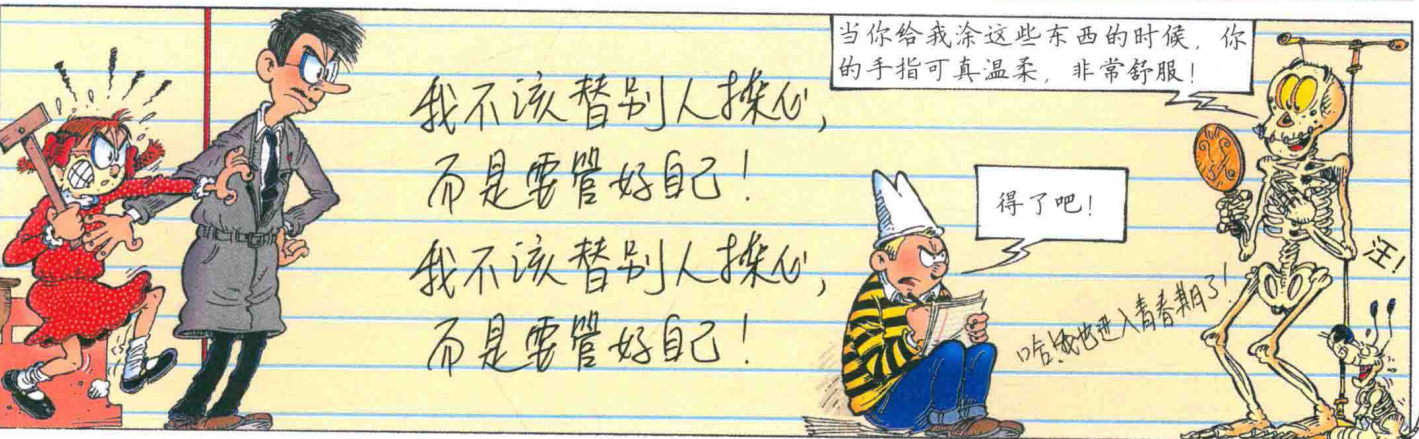 我不该替别人操心,
而是要管好自己!
我不该替别人操心,
而是要管好自己!
当你给我涂这些东西的时候, 你
的手指可真温柔, 非常舒服!
得了吧!
哈!我也进入青春期了!
汪!